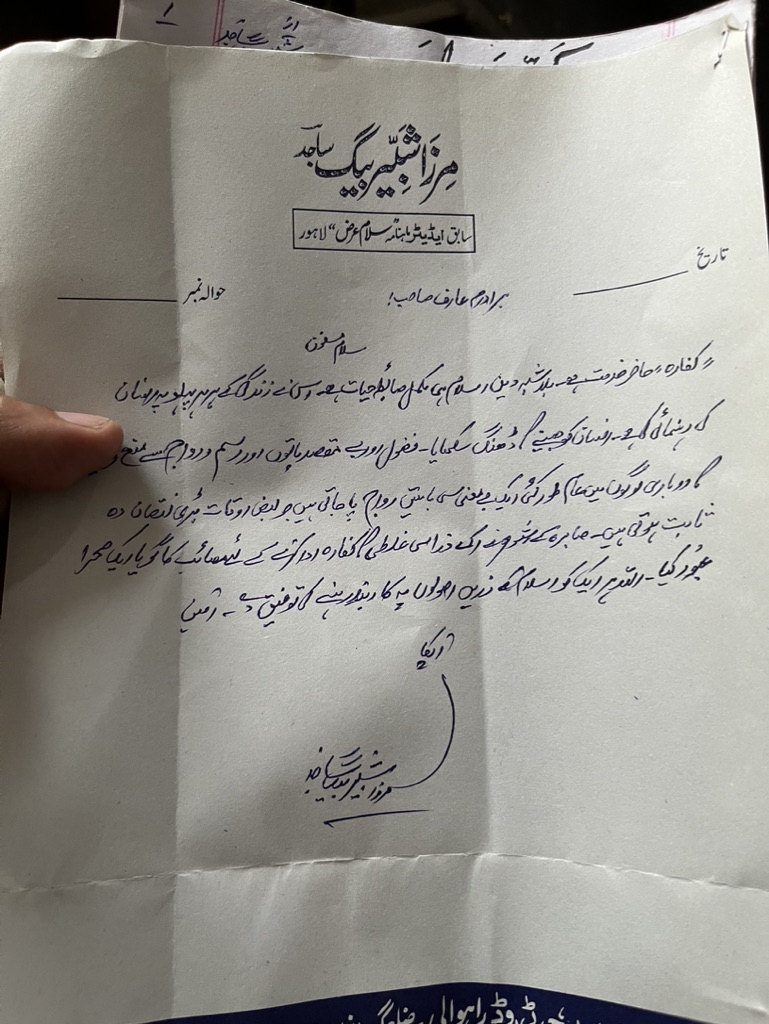 1
مرزا شبیر بیگ ساجد
سابق ایڈیٹر ماہنامہ "سلام عرض" لاہور
تاریخ
حوالہ نمبر
برادرم عارف صاحب!
سلام مسنون
"کفارہ" حاضر خدمت ہے۔ بلاشبہ دین اسلام ہی مکمل ضابطہ حیات ہے۔ اس نے زندگی کے ہر ہر پہلو پر انسان
کی رہنمائی کی ہے۔ انسان کو جینے کا ڈھنگ سکھایا۔ فضول اور بے مقصد باتوں اور رسم و رواج سے منع
کاروباری لوگوں میں عام طور کئی ایک بے معنی سی باتیں رواج پا جاتی ہیں جو بعض اوقات بڑی نقصان دہ
ثابت ہوتی ہیں۔ صابرہ کے شوہر نے اک ذرا سی غلطی کا کفارہ ادا کرنے کے لئے مصائب کا گویا ایک صحرا
عبور کیا۔ اللہ ہر ایک کو اسلام کے زریں اصولوں پہ کاربند رہنے کی توفیق دے۔ آمین
آپکا
مرزا شبیر بیگ ساجد
روڈ راہوالی